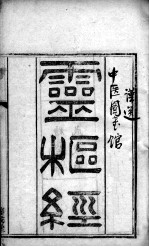 謹送
中医圖書館
靈樞經